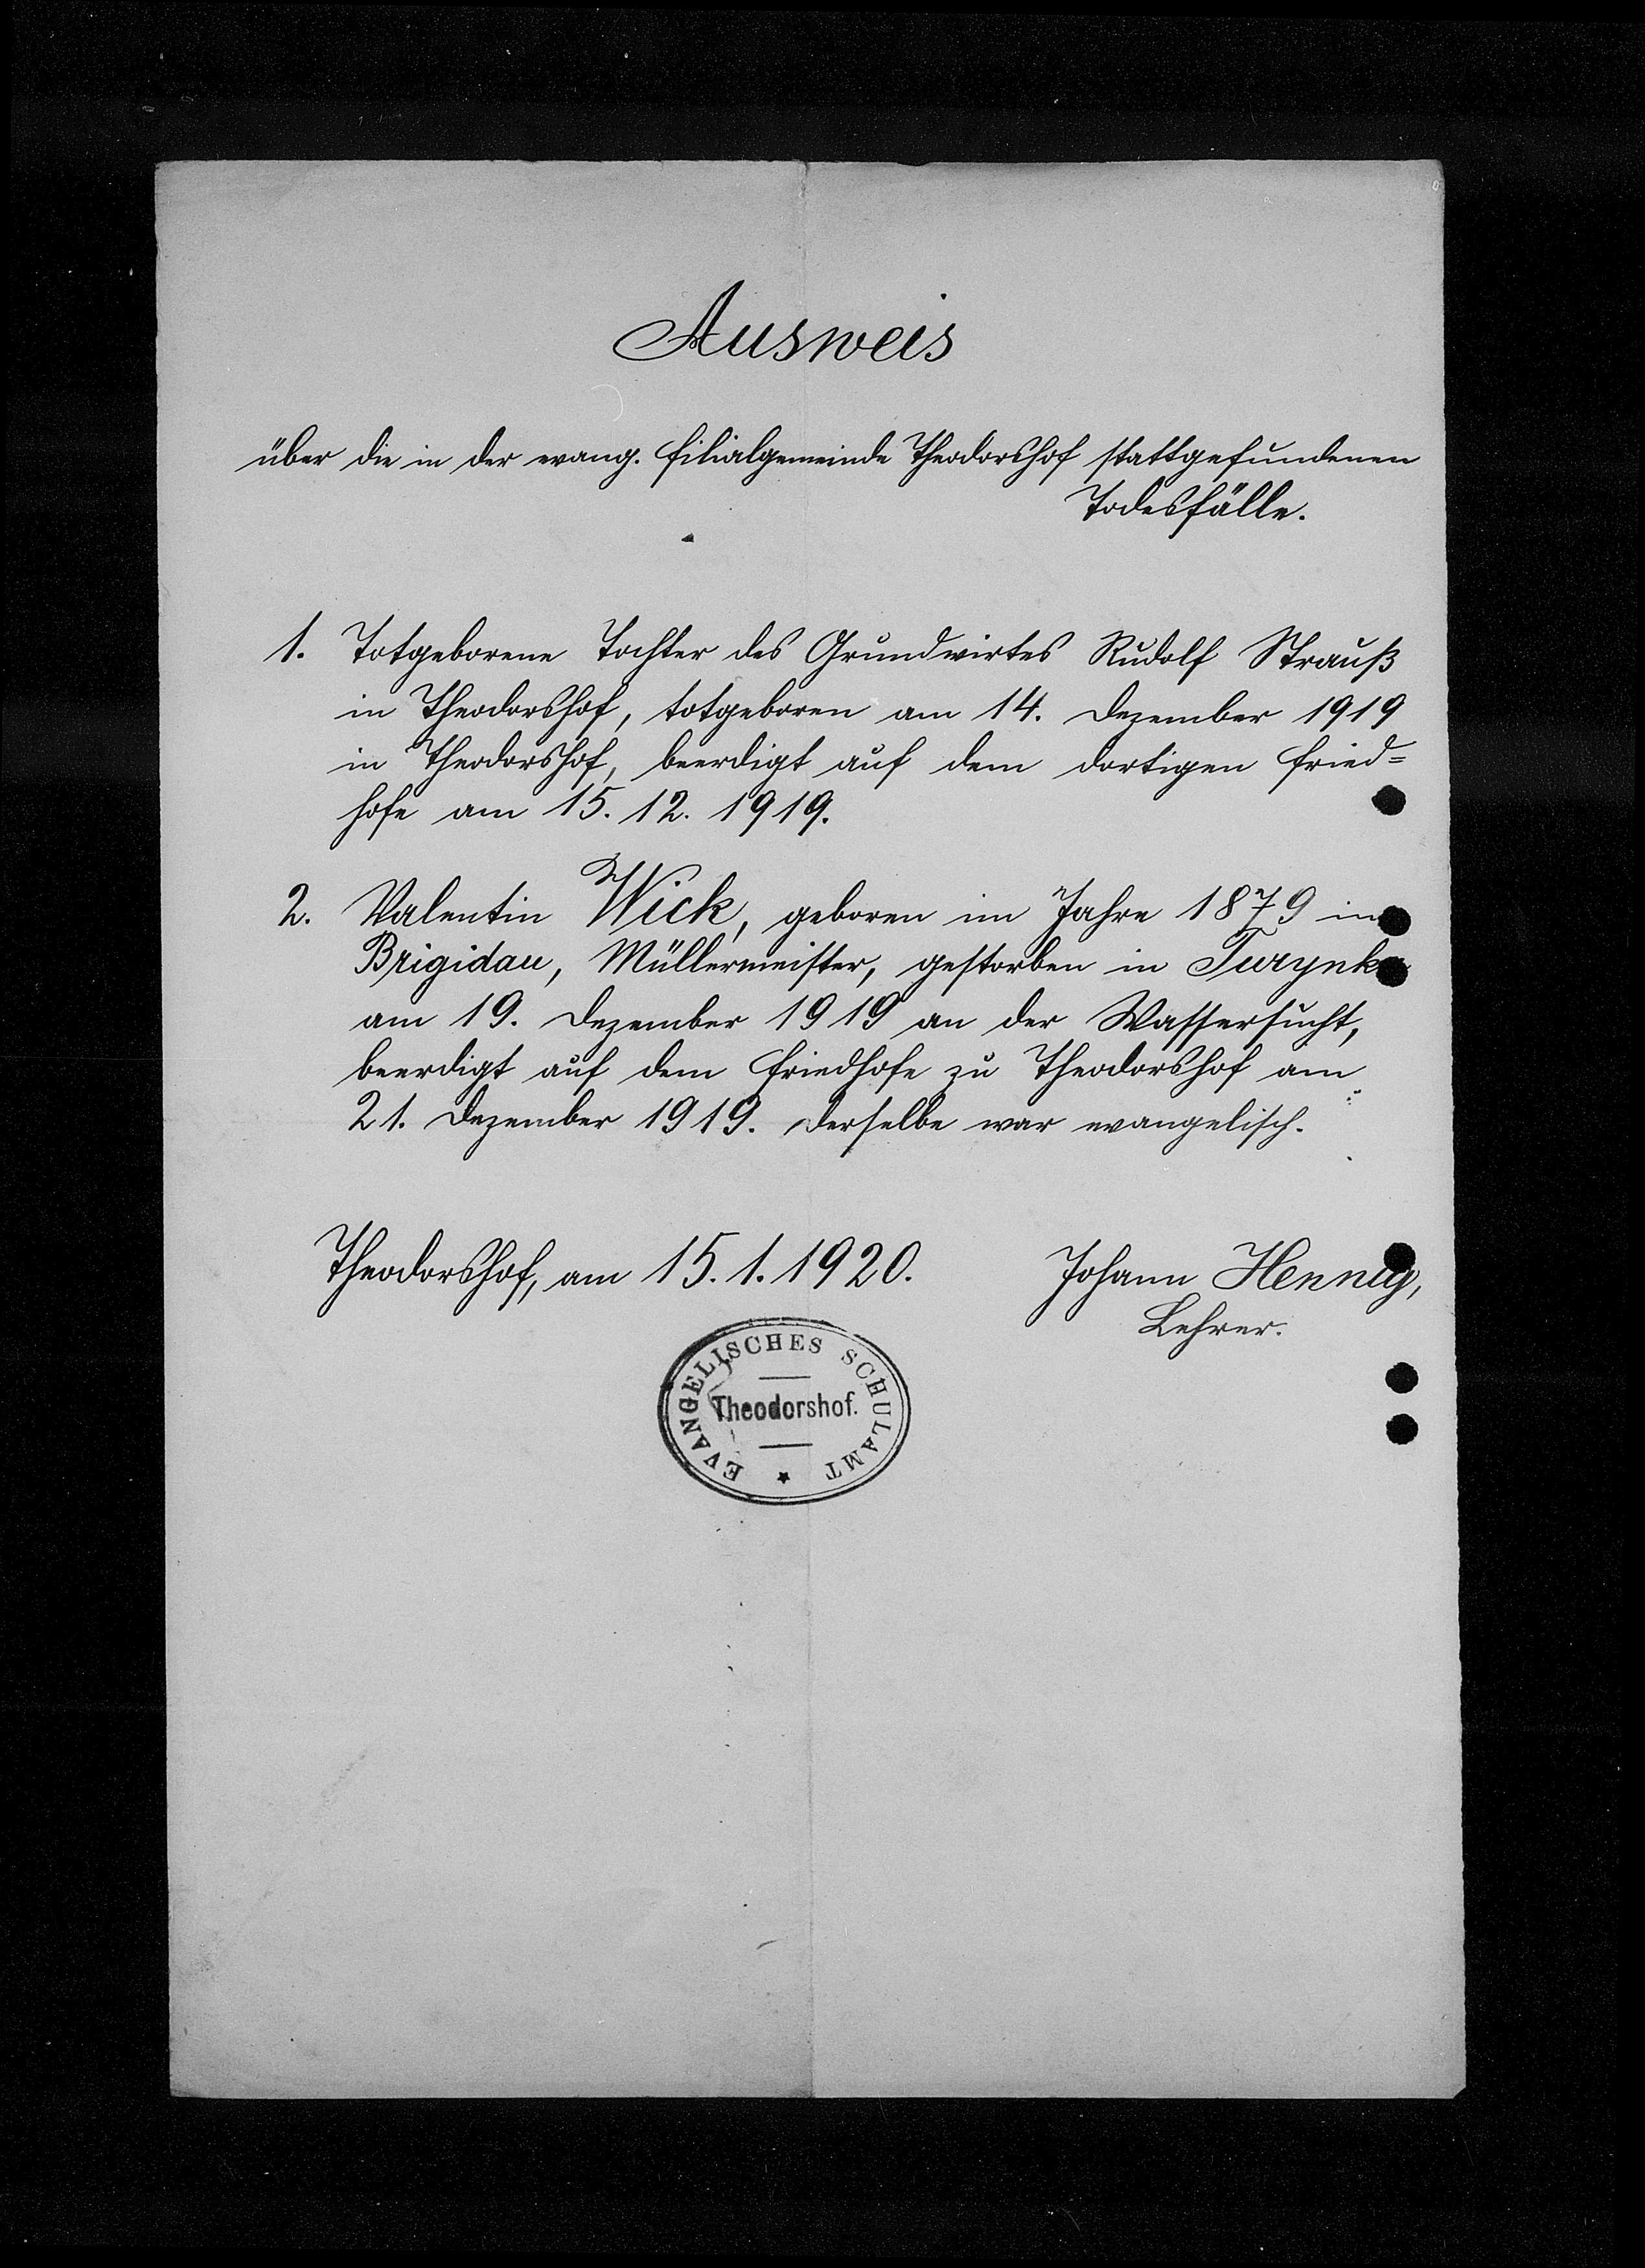 Ausweis
über die in der evang. Filialgemeinde Theodorshof stattgefundenen
Todesfälle.
1. Totgeborene Tochter des Grundwirtes Rudolf Strauß
in Theodorshof, totgeboren am 14. Dezember 1919
in Theodorshof, beerdigt auf dem dortigen Fried=
hofe am 15. 12. 1919.
2. Valentin Wick, geboren im Jahre 1879 in
Brigidau, Müllermeister, gestorben in Turynka
am 19. Dezember 1919 an der Wassersucht,
beerdigt auf dem Friedhofe zu Theodorshof am
21. Dezember 1919. Derselbe war evangelisch.
Theodorshof, am 15. 1. 1920.
Johann Hennig,
Lehrer.
EVANGELISCHES SCHULAMT
Theodorshof.